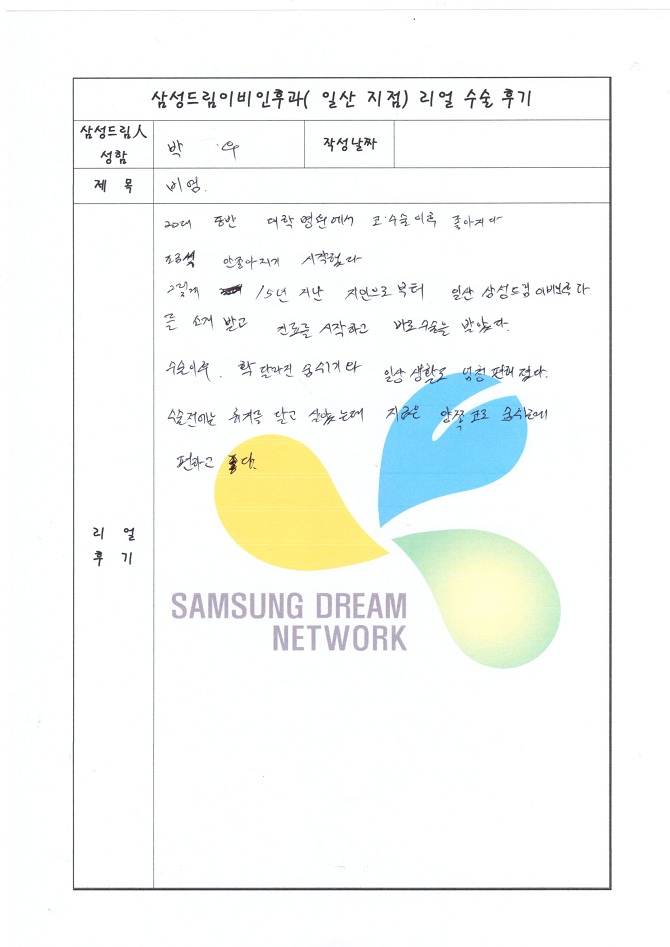 삼성드림이비인후과( 일산 지점) 리얼 수술 후기
삼성드림人
성함
박 우
작성날짜
제 목
비염.
20대 중반 대학병원에서 코 수술이후 좋아지다
조금씩 안좋아지기 시작했다
그렇게 15년 지난 지인으로부터 일산 삼성드림이비인후과
를 소개 받고 진료를 시작하고 바로수술을 받았다.
수술이후. 확 달라진 숨쉬기와 일상생활도 엄청 편해졌다.
수술전에는 휴지를 달고 살았는데 지금은 양쪽 코로 숨쉬는게
편하고 좋다.
리 얼
후 기
SAMSUNG DREAM
NETWORK